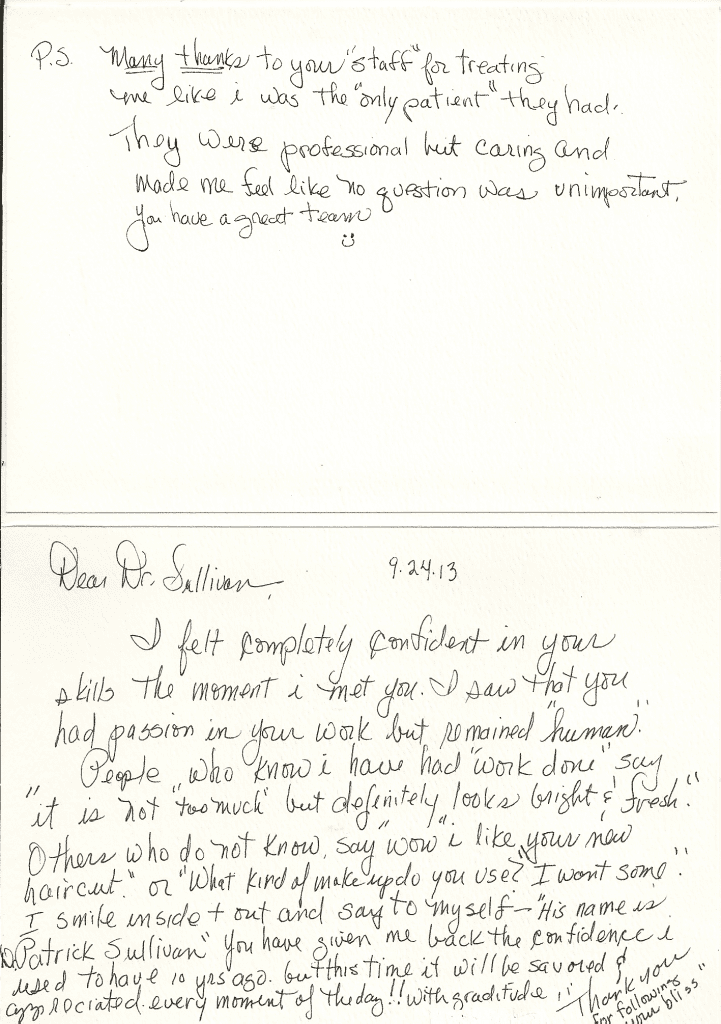 P.S. Many thanks to your "staff" for treating
me like i was the "only patient" they had.
They were professional but caring and
made me feel like no question was unimportant.
You have a great team
Dear Dr. Sullivan,
9.24.13
I felt completely confident in your
skills the moment i met you. I saw that you
had passion in your work but remained "human".
People "who know i have had "work done" say
"it is not "too much" but definitely looks bright & fresh."
Others who do not know, say "wow" i like your new
haircut." or "What kind of makeup do you use?" I want some".
I smile inside + out and say to myself - "His name is
Dr. Patrick Sullivan" you have given me back the confidence i
used to have 10 yrs ago. but this time it will be savored &
appreciated every moment of the day!! with graditude !!
Thank you
for following
your bliss"